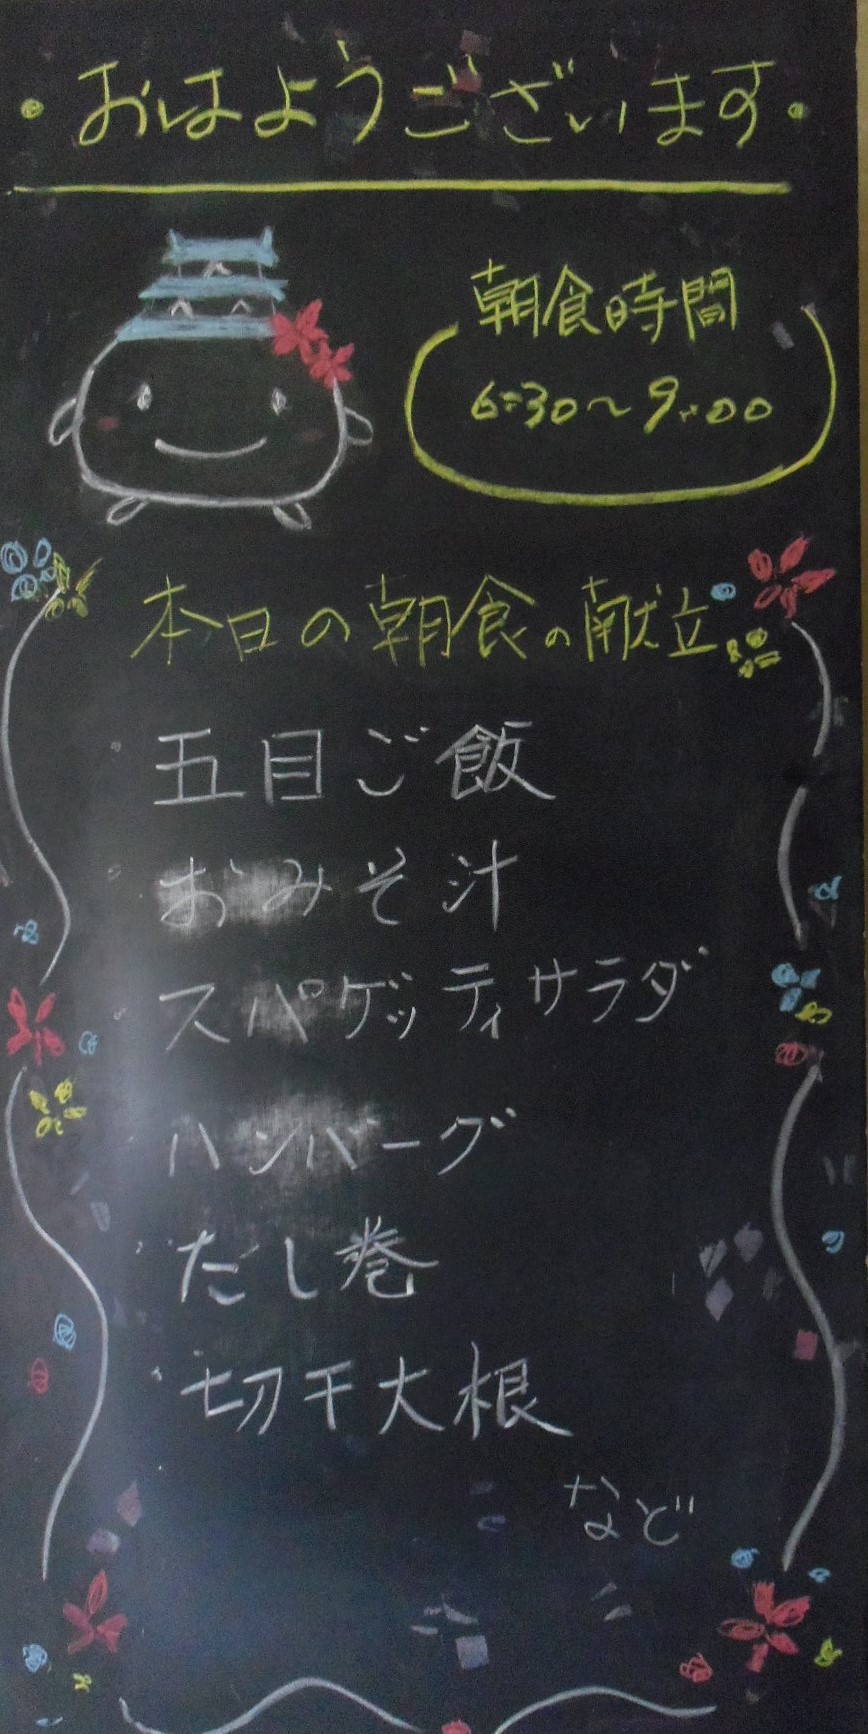 ・おはようございます・
朝食時間
6:30〜9:00
本日の朝食の献立
・五目ご飯
・おみそ汁
・スパゲッティサラダ
・ハンバーグ
・だし巻
・切干大根
など